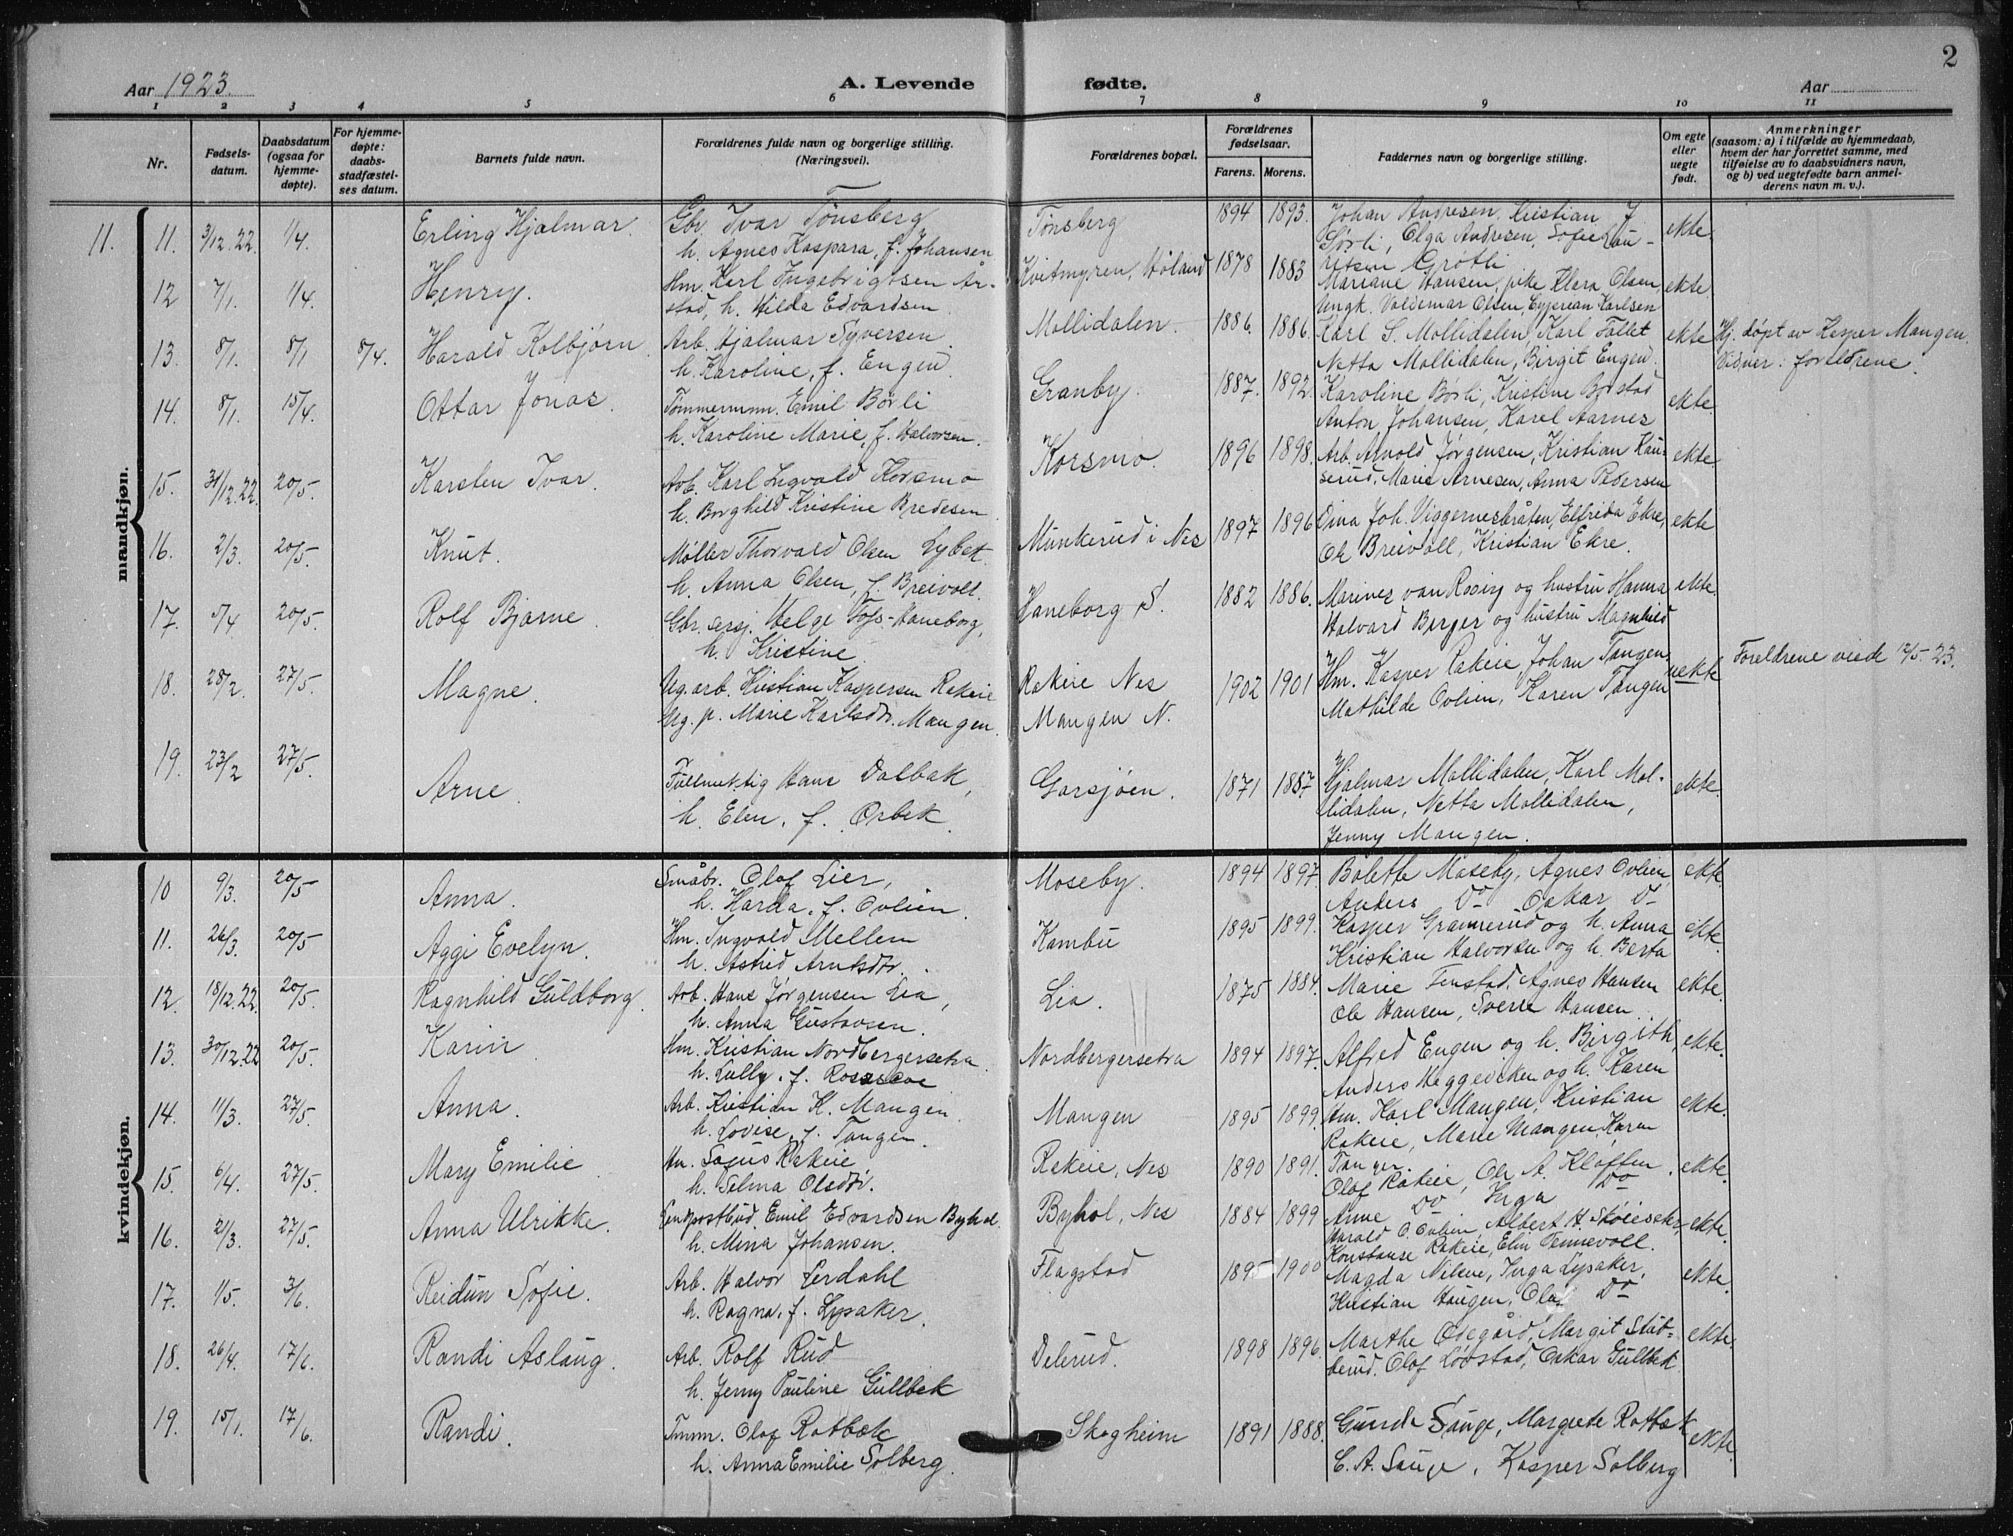 2
Aar 1923.
A. Levende fødte.
Aar
1 2 3 4 5 6 7 8 9 10 11
Nr.
Fødsels-
datum.
Daabsdatum
(ogsaa for
hjemme-
døpte).
For hjemme-
døpte:
daabs-
stadfæstel-
ses datum.
Barnets fulde navn.
Forældrenes fulde navn og borgerlige stilling.
(Næringsvei).
Forældrenes bopæl.
Forældrenes
fødselsaar.
Farens. Morens.
Faddernes navn og borgerlige stilling.
Om egte
eller
uegte
født.
Anmerkninger
(saasom: a) i tilfælde av hjemmedaab,
hvem der har forrettet samme, med
tilføielse av to daabsvidners navn,
og b) ved uegtefødte barn anmel-
derens navn m. v.).
mandkjøn.
11. 11. 3/12.22. 1/4. Erling Hjalmar. Gbr. Ivar Tønsberg Tønsberg 1894 1893. Johan Andresen, Kristian J. ekte.
h. Agnes Kaspara, f. Johansen Sørli, Olga Andresen, Sofie
Grøtli
12 7/1. 1/4. Henry. Hm. Karl Ingebrigtsen År- Kvitmyren, Høland 1878 1883 Mariane Hansen, pike Klara Olsen, ekte
stad, h. Hilda Edvardsen Ungk. Valdemar Olsen, Cyprean Karlsen
13. 8/1. 8/1 8/4. Harald Kolbjørn. Arb. Hjalmar Syversen Mollidalen. 1886. 1886. Karl S. Mollidalen, Karl Fallet ekte Hj. døpt av Kasper Mangen.
h. Karoline, f. Engen. Netta Mollidalen, Birgit Engen. Vidner: foreldrene.
14. 8/1. 15/4. Ottar Jonas. Tømmermm. Emil Børli Granby. 1887. 1892. Karoline Børli, Kristine Børstad ekte.
h. Karoline Marie, f. Halvorsen. Anton Johansen, Karel Aarnes
15. 31/12.22. 20/5. Karsten Ivar. Arb. Karl Sigvald Korsmo Korsmo. 1896 1898. Arb. Arvold Jørgensen, Kristian Kau- ekte.
h. Borghild Kristine Bredesen serud, Marie Arnesen, Anna Pedersen
16. 2/3. 20/5. Knut. Møller Thorvald Olsen Lybek Munkerud i Nes 1897 1896 Dina Joh. Viggernesbråten, Elfrida Ekre, ekte
h. Anna Olsen, f. Breivoll. Ole Breivoll, Kristian Ekre.
17. 5/4. 20/5. Rolf Bjarne. Gbr. sersj. Helge Foss-Haneborg, Haneborg S. 1882 1886. Marines van Rosiy og hustru Hanna ekte.
h. Kristine. Halvard Berger og hustru Magnhild
18. 28/2. 27/5. Magne. Ug. arb. Kristian Kaspersen Rakeie Rakeie Nes 1902 1901 Hm. Kasper Rakeie, Johan Tangen, uekte Foreldrene viede 12/5-23.
Ug. p. Marie Karlsdtr. Mangen. Mangen N. Mathilde Ovlien, Karen Tangen
19. 23/2 27/5. Arne. Fullmektig Hans Dalbak, Garsjøen. 1871 1887 Hjalmar Mollidalen, Karl Mol- ekte.
h. Elen, f. Ørbek. lidalen, Netta Mollidalen,
Jenny Mangen.
kvindekjøn.
10 9/3. 20/5 Anna. Småbr. Olof Lier, Moseby. 1894 1897. Bolette Moseby, Agnes Ovlien, ekte.
h. Harda, f. Ovlien. Anders Do Oskar Do
11. 26/3. 20/5 Aggi Evelyn. Hm. Ingvald Mellem Kambu 1895 1899. Kasper Grannerud og h. Anna ekte.
h. Astrid Arntsdtr. Kristian Halvorsen og h. Berta
12. 18/12.22. 20/5. Ragnhild Guldborg. Arb. Hans Jørgensen Lia, Lia. 1875 1884. Marie Tenstad, Agnes Hansen ekte.
h. Anna Gustavsen. Ole Hansen, Sverre Hansen.
13. 30/12.22 20/5. Karin. Hm. Kristian Nordbergersetra Nordbergersetra 1894 1897. Alfred Engen og h. Birgith, ekte.
h. Lully, f. Anders Heggedeken og h. Karen
14. 11/3. 27/5. Anna. Arb. Kristian K. Mangen. Mangen 1895 1899. Hm. Karl Mangen, Kristian ekte.
h. Lovise, f. Tangen. Rakeie, Marie Mangen, Karen
Tangen
15. 6/4. 27/5. Mary Emilie. Hm. Rakeie Rakeie, Nes 1890 1891. Olof Rakeie, Ole A. Kloften. ekte.
h. Selma Olsdtr. Anne Do Inga Do
16. 2/3. 27/5. Anna Ulrikke. Lenkpostbud. Emil Edvardsen Byhol. Byhol, Nes 1884 1899 Harald O. Ovlien, Albert H. ekte.
h. Mina Johansen. Konstanse Rakeie, Elin Tennevoll.
17. 1/5. 3/6. Reidun Sofie. Arb. Halvor Lerdahl Flagstad 1895 1900 Magda Nilsen, Inga Lysaker, ekte.
h. Ragna, f. Lysaker. Kristian Haugen, Olaf Do
18. 26/4. 17/6. Randi Aslaug. Arb. Rolf Rud Delerud. 1898 1896. Marthe Ødegård, Margit Stub- ekte.
h. Jenny Pauline Gullbek berud. Olof Løvstad, Oskar Gullbek
19. 15/1. 17/6. Randi. Tmm. Olof Rotbæk Skogheim 1891 1888. Gunda Sauge, Margrete Rotbæk ekte.
h. Anna Emilie Solberg. C. A. Sauge, Kasper Solberg